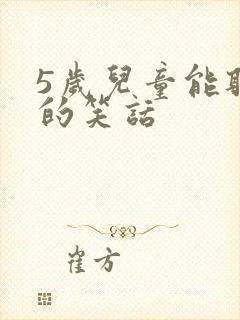 5歲兒童能
的笑話
崔方